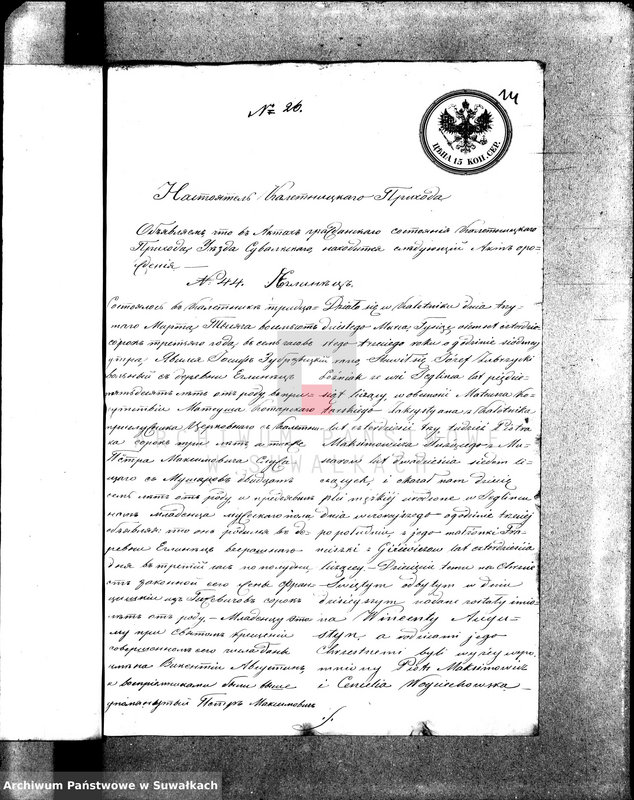 № 26.
24
ЦѢНА 15 КОП. СЕР.
Настоятель Калетницкаго Прихода
Объявляемъ что въ Актахъ гражданскаго состоянія Калетницкаго
Прихода, Уѣзда Сувалкскаго, находится слѣдующій Актъ оро-
жденіи —
№ 44. Еглинецъ.
Состоялось въ Калетникѣ тридца-
таго Марта, Тысяча восемьсотъ
сорокъ третьяго года, въ семь часовъ
утра. Явился Іосифъ Зубржицкій
вольный съ деревни Еглинецъ
пятьдесятъ лѣтъ отъ роду, въ при-
сутствіи Матеуша Котарскаго
прислужника Церковнаго съ Калетни-
ка сорокъ три лѣтъ а также
Петра Максимовича Служа-
щаго съ Мушкровъ двадцать
семь лѣтъ отъ роду и предъявилъ
намъ младенца мужескаго пола
объявляя: что оно родилось въ де-
ревни Еглинецъ вчерашняго
дня въ третій часъ по полудни
отъ законной его жены Фран-
цишки изъ Гижевичовъ сорокъ
лѣтъ отъ роду. — Младенцу это-
му при Святомъ крещеніи
совершенномъ сего числа даны
имяна Викентій Августинъ,
а воспріемниками были выше
упомянутый Петръ Максимовичъ
Działo się w Kaletniku dnia trzy-
dziestego Marca, Tysiąc ośmset czterdzie-
stego trzeciego roku o godzinie siódmej
rano, Stawił się Józef Zubrzycki
Rolnik ze wsi Jeglińca lat pięćdzie-
siąt liczący, w obecności Mateusza Ko-
tarskiego Zakrystyana z Kaletnika
lat czterdzieści trzy, tudzież Piotra
Maksimowicza Służącego z Mu-
szkrow lat dwadzieścia siedem li-
czących, i okazał nam dziecię
płci męskiej urodzone w Jeglińcu
dnia wczorajszego o godzinie trzeciej
po południu, z jego małżonki Fran-
ciszki z Giżewiczow lat czterdzieścia
liczącej — Dziecięciu temu na Chrzcie
Świętym odbytym w dniu
dzisiejszym nadane zostały imio-
na Wincenty Augu-
styn, a rodzicami jego
Chrzestnemi byli wyżej wspo-
mniony Piotr Maksimowicz
i Cecilia Woyciechowska —
Archiwum Państwowe w Suwałkach